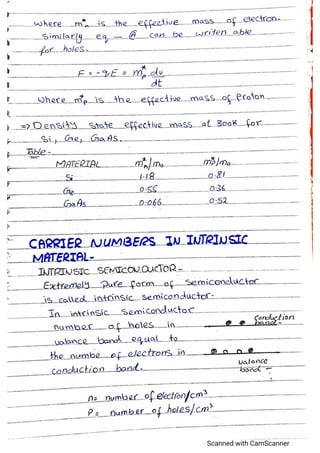 where m*n is the effective mass of electron.
Similarly eq — @ can be writen able
for holes.
F = -qE = m*p dv/dt
where m*p is the effective mass of Proton.
=> Density State effective mass at 300K for
Si, Ge, GaAs.
Table-
MATERIAL m*n/mo m*p/mo
Si 1.18 0.81
Ge 0.55 0.36
GaAs 0.066 0.52
CARRIER NUMBERS IN INTRINSIC
MATERIAL-
INTRINSIC SEMICONDUCTOR-
Extremely Pure form of Semiconductor
is called intrinsic semiconductor.
In intrinsic Semiconductor
number of holes in
valance band equal to
the numbe of electrons in
conduction band.
Conduction
band-
valance
band -
n= number of electron/cm³
P= number of holes/cm³
Scanned with CamScanner